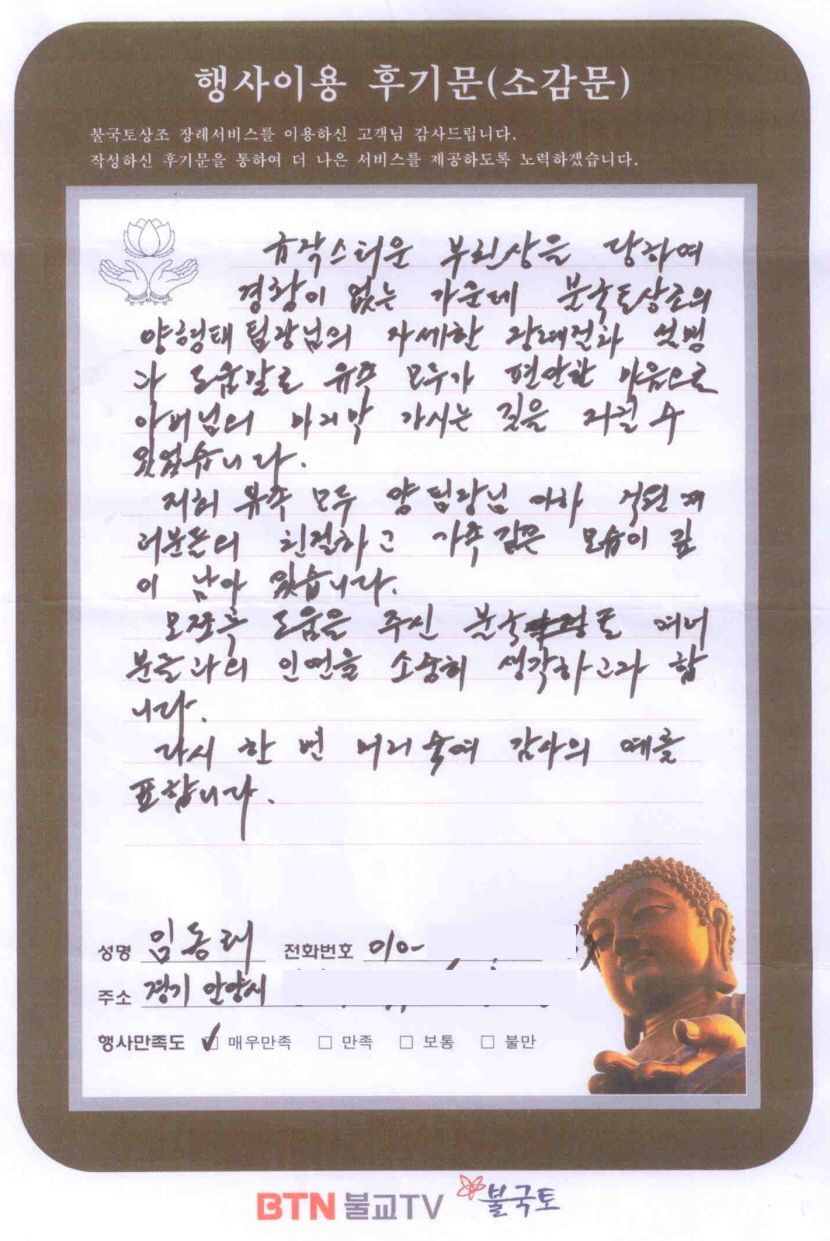 행사이용 후기문(소감문)
불국토상조 장례서비스를 이용하신 고객님 감사드립니다.
작성하신 후기문을 통하여 더 나은 서비스를 제공하도록 노력하겠습니다.
갑작스러운 부친상을 당하여
경황이 없는 가운데 불국토상조의
양형태 팀장님의 자세한 장례절차 설명
과 도움갈로 유족 모두가 편안한 마음으로
아버님의 마지막 가시는 길을 지킬 수
있었습니다.
저희 유족 모두 양 팀장님 이하 직원 여
러분들의 친절하고 가족 같은 모습이 깊
이 남아 있습니다.
모쪼록 도움을 주신 불국토 여러
분들과의 인연을 소중히 생각하고자 합
니다.
다시 한 번 머리 숙여 감사의 예를
표합니다.
성명 임동래 전화번호 010-
주소 경기 안양시
행사만족도 ✓□ 매우만족 □ 만족 □ 보통 □ 불만
BTN 불교TV 불국토